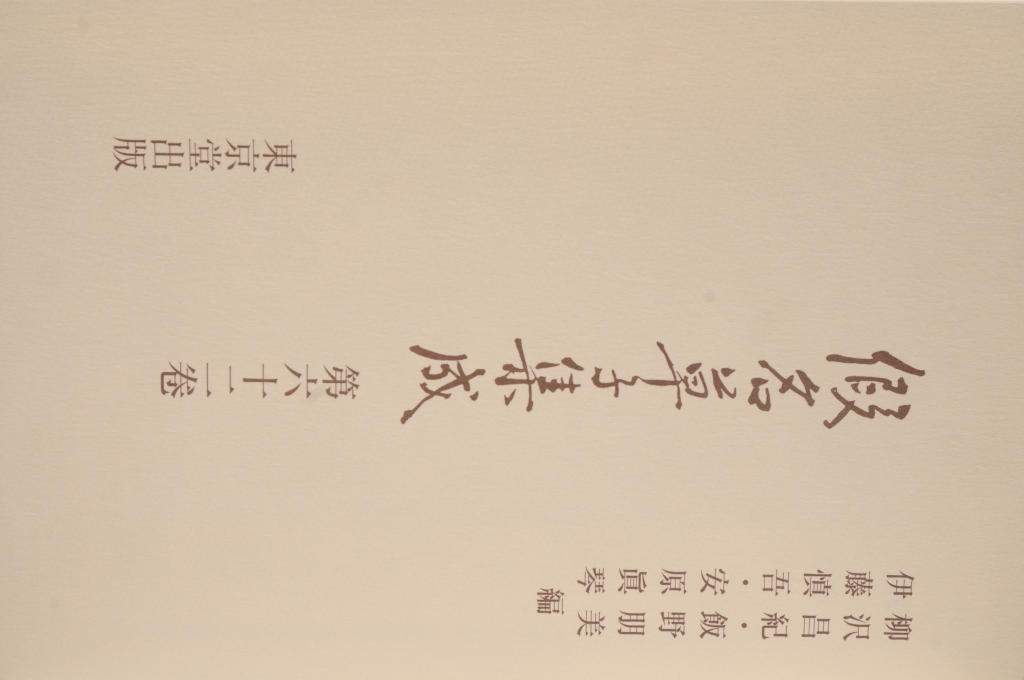 柳沢昌紀・飯野朋美
伊藤慎吾・安原眞琴
編
假名草子集成
第六十二巻
東京堂出版